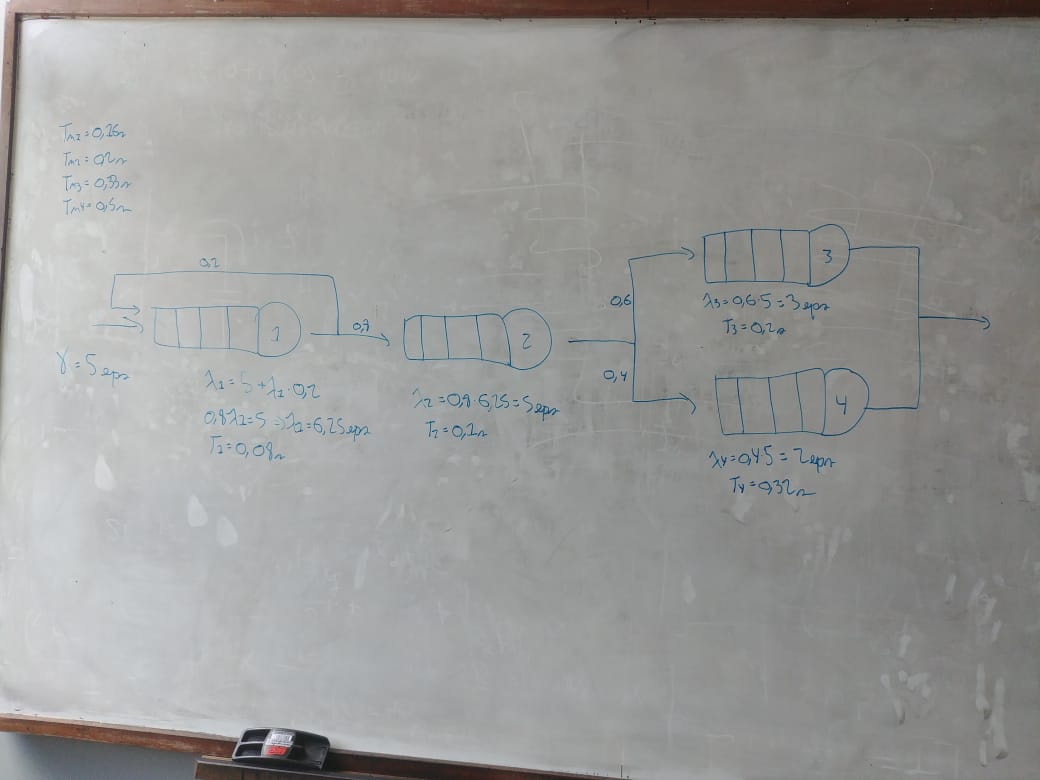 Tm1=0,16s
Tm2=0,2s
Tm3=0,33s
Tm4=0,5s
0,2
1
0,8
2
0,6
0,4
3
4
γ=5eps
λ1=5+λ1·0,2
0,8λ1=5⇒λ1=6,25eps
T1=0,08s
λ2=0,8·6,25=5eps
T2=0,1s
λ3=0,6·5=3eps
T3=0,2s
λ4=0,4·5=2eps
T4=0,32s